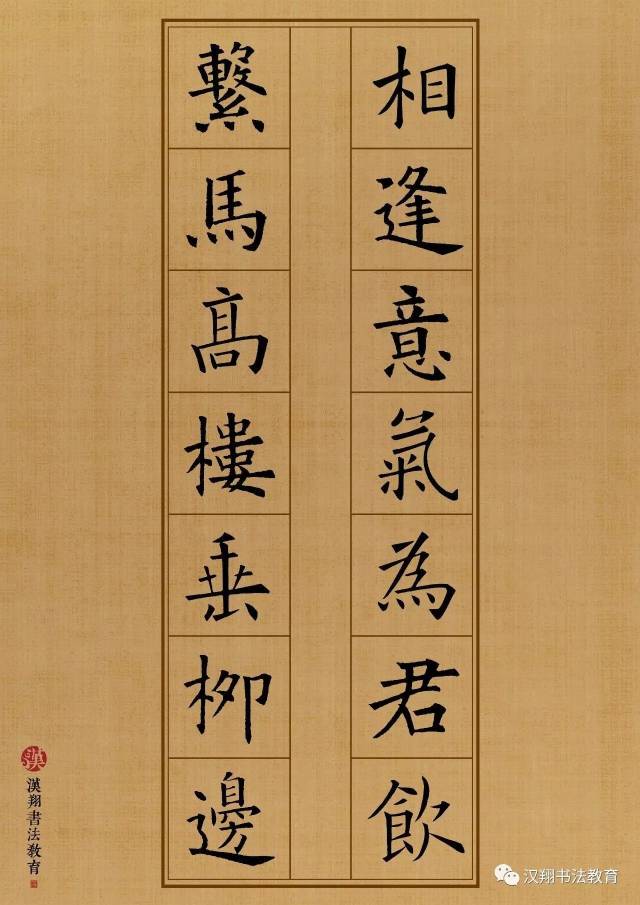 相逢意氣為君飲
繫馬髙樓垂柳邊
漢
漢翔書法教育
汉翔书法教育